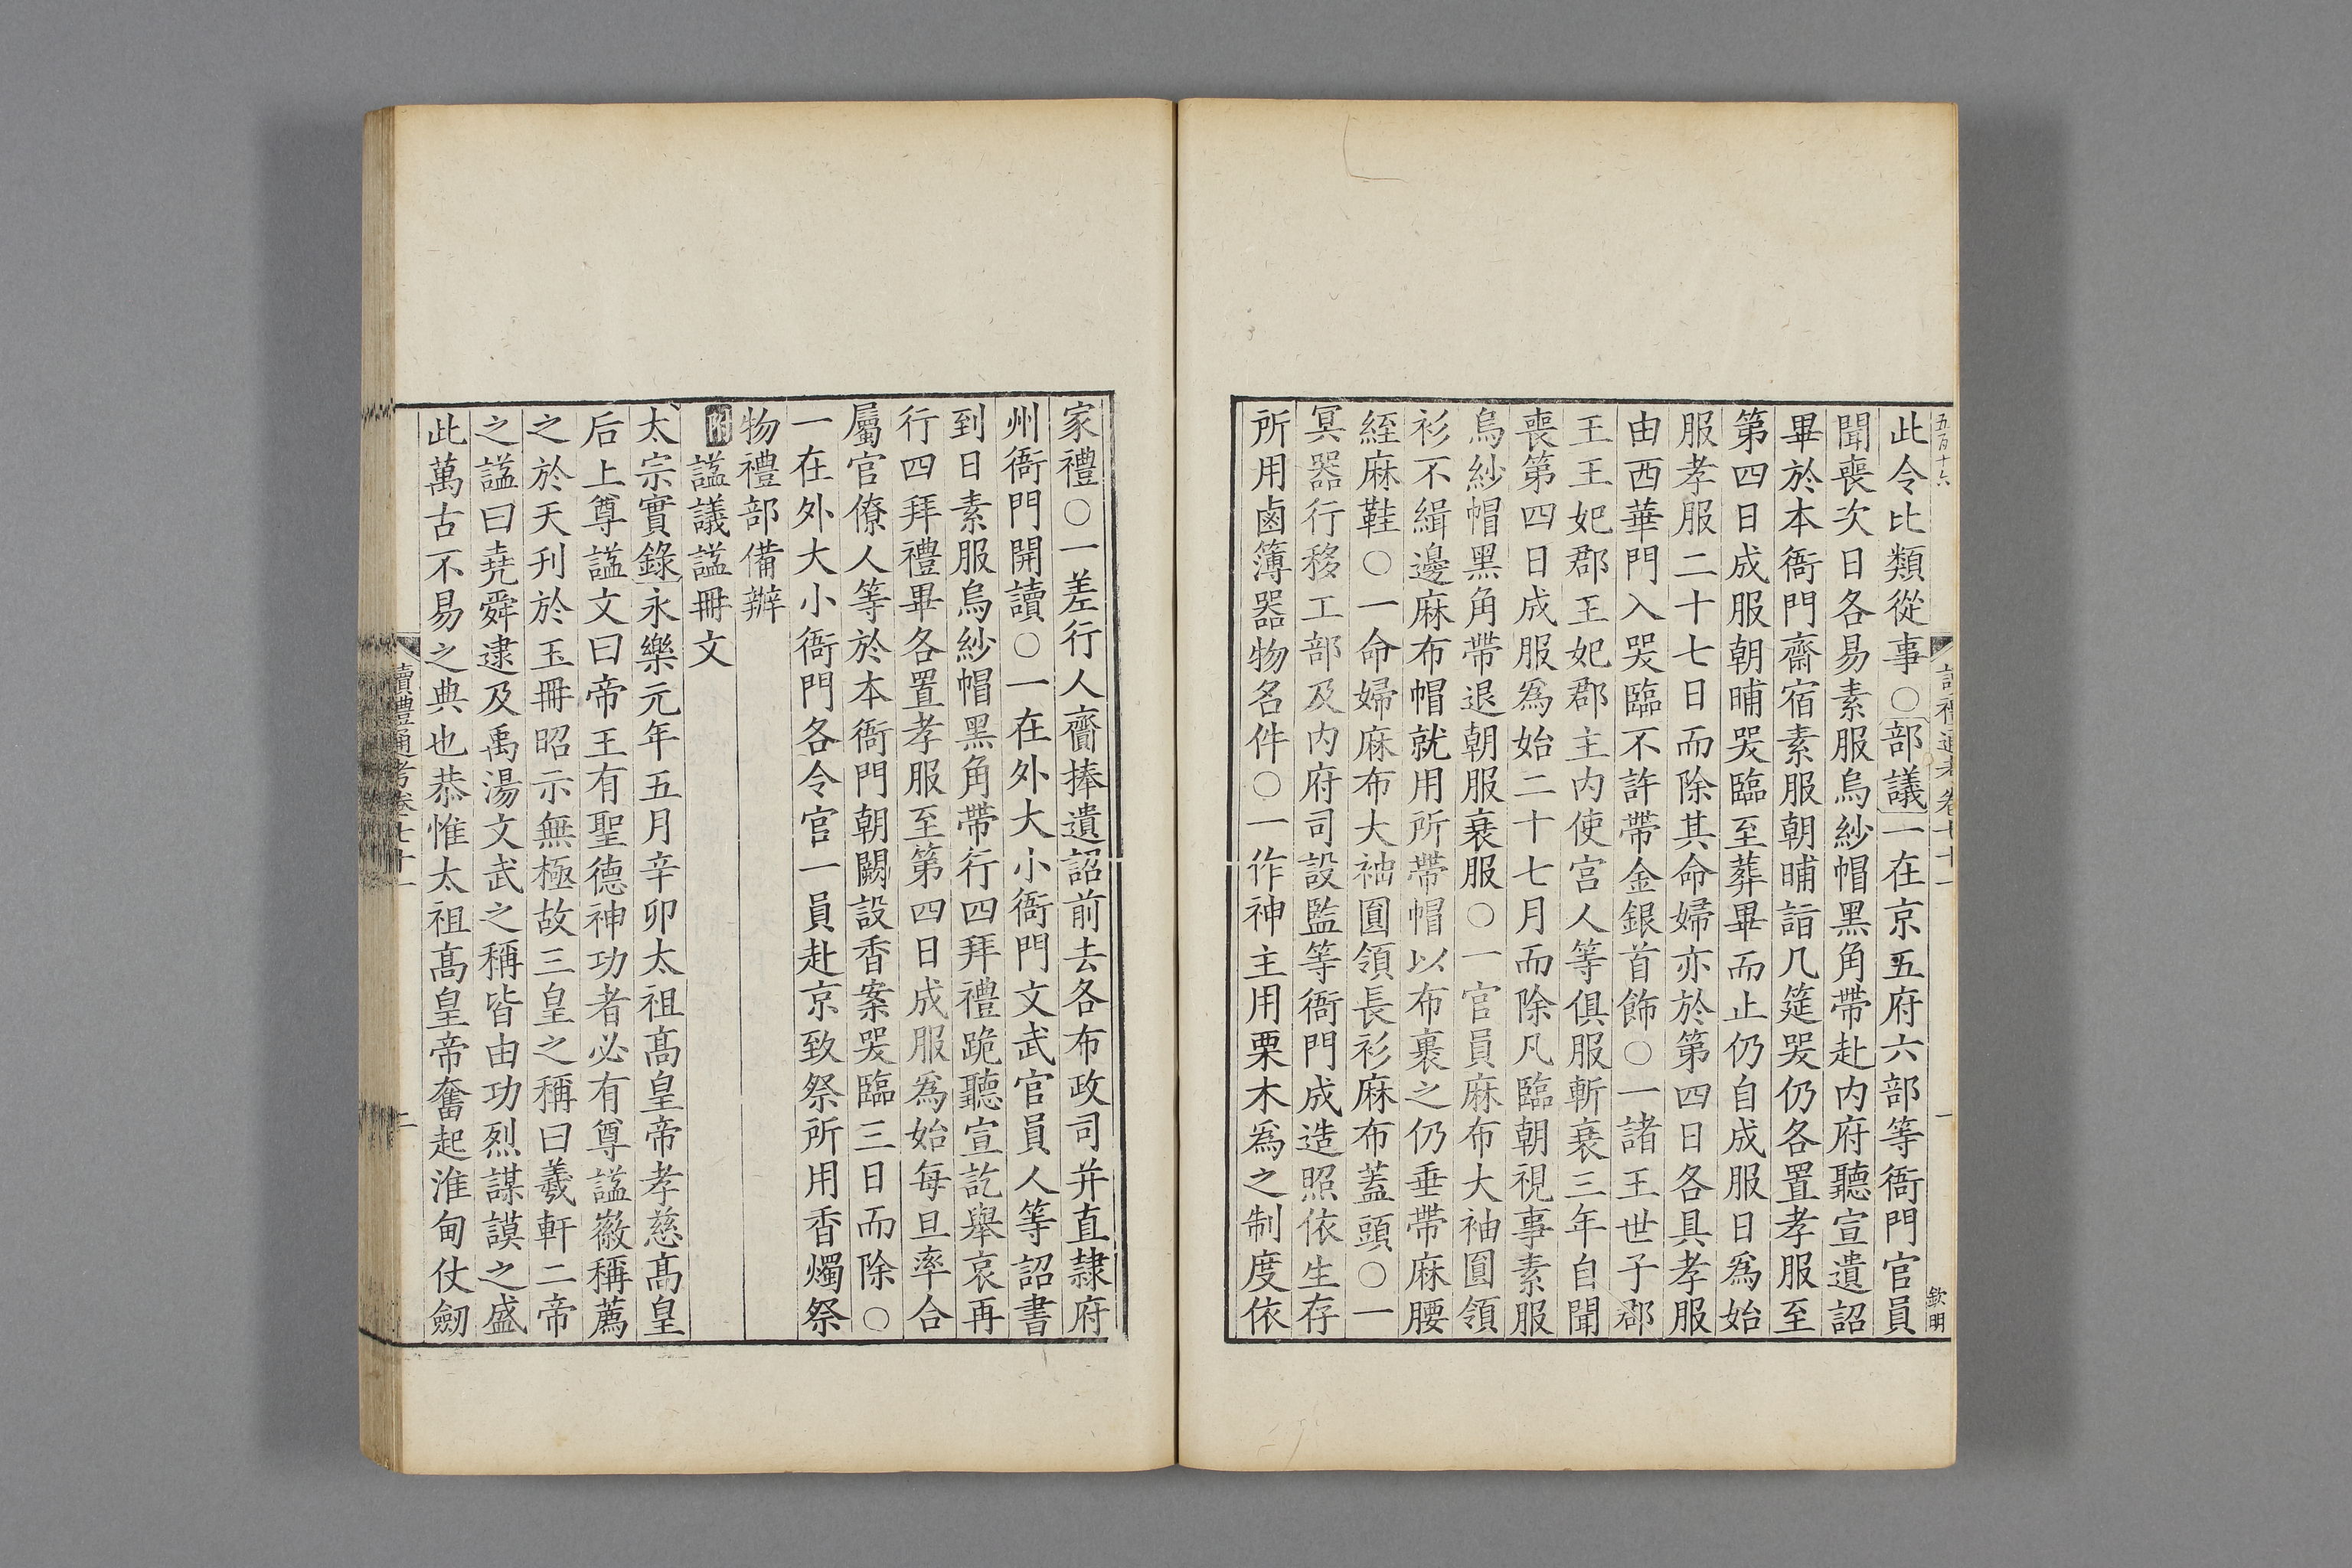 五百十六
讀禮通考卷七十一
一
欽明
此令比類從事○部議一在京五府六部等衙門官員
聞喪次日各易素服烏紗帽黑角帶赴内府聽宣遺詔
畢於本衙門齋宿素服朝晡詣几筵哭仍各置孝服至
第四日成服朝晡哭臨至葬畢而止仍自成服日爲始
服孝服二十七日而除其命婦亦於第四日各具孝服
由西華門入哭臨不許帶金銀首飾○一諸王世子郡
王王妃郡王妃郡主内使宮人等俱服斬衰三年自聞
喪第四日成服爲始二十七月而除凡臨朝視事素服
烏紗帽黑角帶退朝服衰服○一官員麻布大袖圓領
衫不緝邊麻布帽就用所帶帽以布裹之仍垂帶麻腰
絰麻鞋○一命婦麻布大袖圓領長衫麻布蓋頭○一
冥器行移工部及内府司設監等衙門成造照依生存
所用鹵簿器物名件○一作神主用栗木爲之制度依
家禮○一差行人齎捧遺詔前去各布政司并直隸府
州衙門開讀○一在外大小衙門文武官員人等詔書
到日素服烏紗帽黑角帶行四拜禮跪聽宣訖舉哀再
行四拜禮畢各置孝服至第四日成服爲始每旦率合
屬官僚人等於本衙門朝闕設香案哭臨三日而除○
一在外大小衙門各令官一員赴京致祭所用香燭祭
物禮部備辦
附諡議諡冊文
太宗實錄永樂元年五月辛卯太祖高皇帝孝慈高皇
后上尊諡文曰帝王有聖德神功者必有尊諡徽稱薦
之於天刋於玉冊昭示無極故三皇之稱曰羲軒二帝
之諡曰堯舜逮及禹湯文武之稱皆由功烈謀謨之盛
此萬古不易之典也恭惟太祖高皇帝奮起淮甸仗劒
讀禮通考卷七十一
二